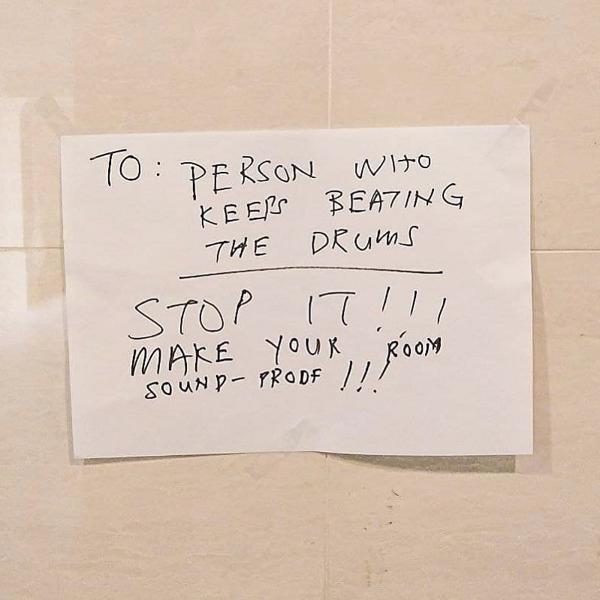 TO: PERSON WHO
KEEPS BEATING
THE DRUMS
STOP IT!!!
MAKE YOUR ROOM
SOUND-PROOF !!!